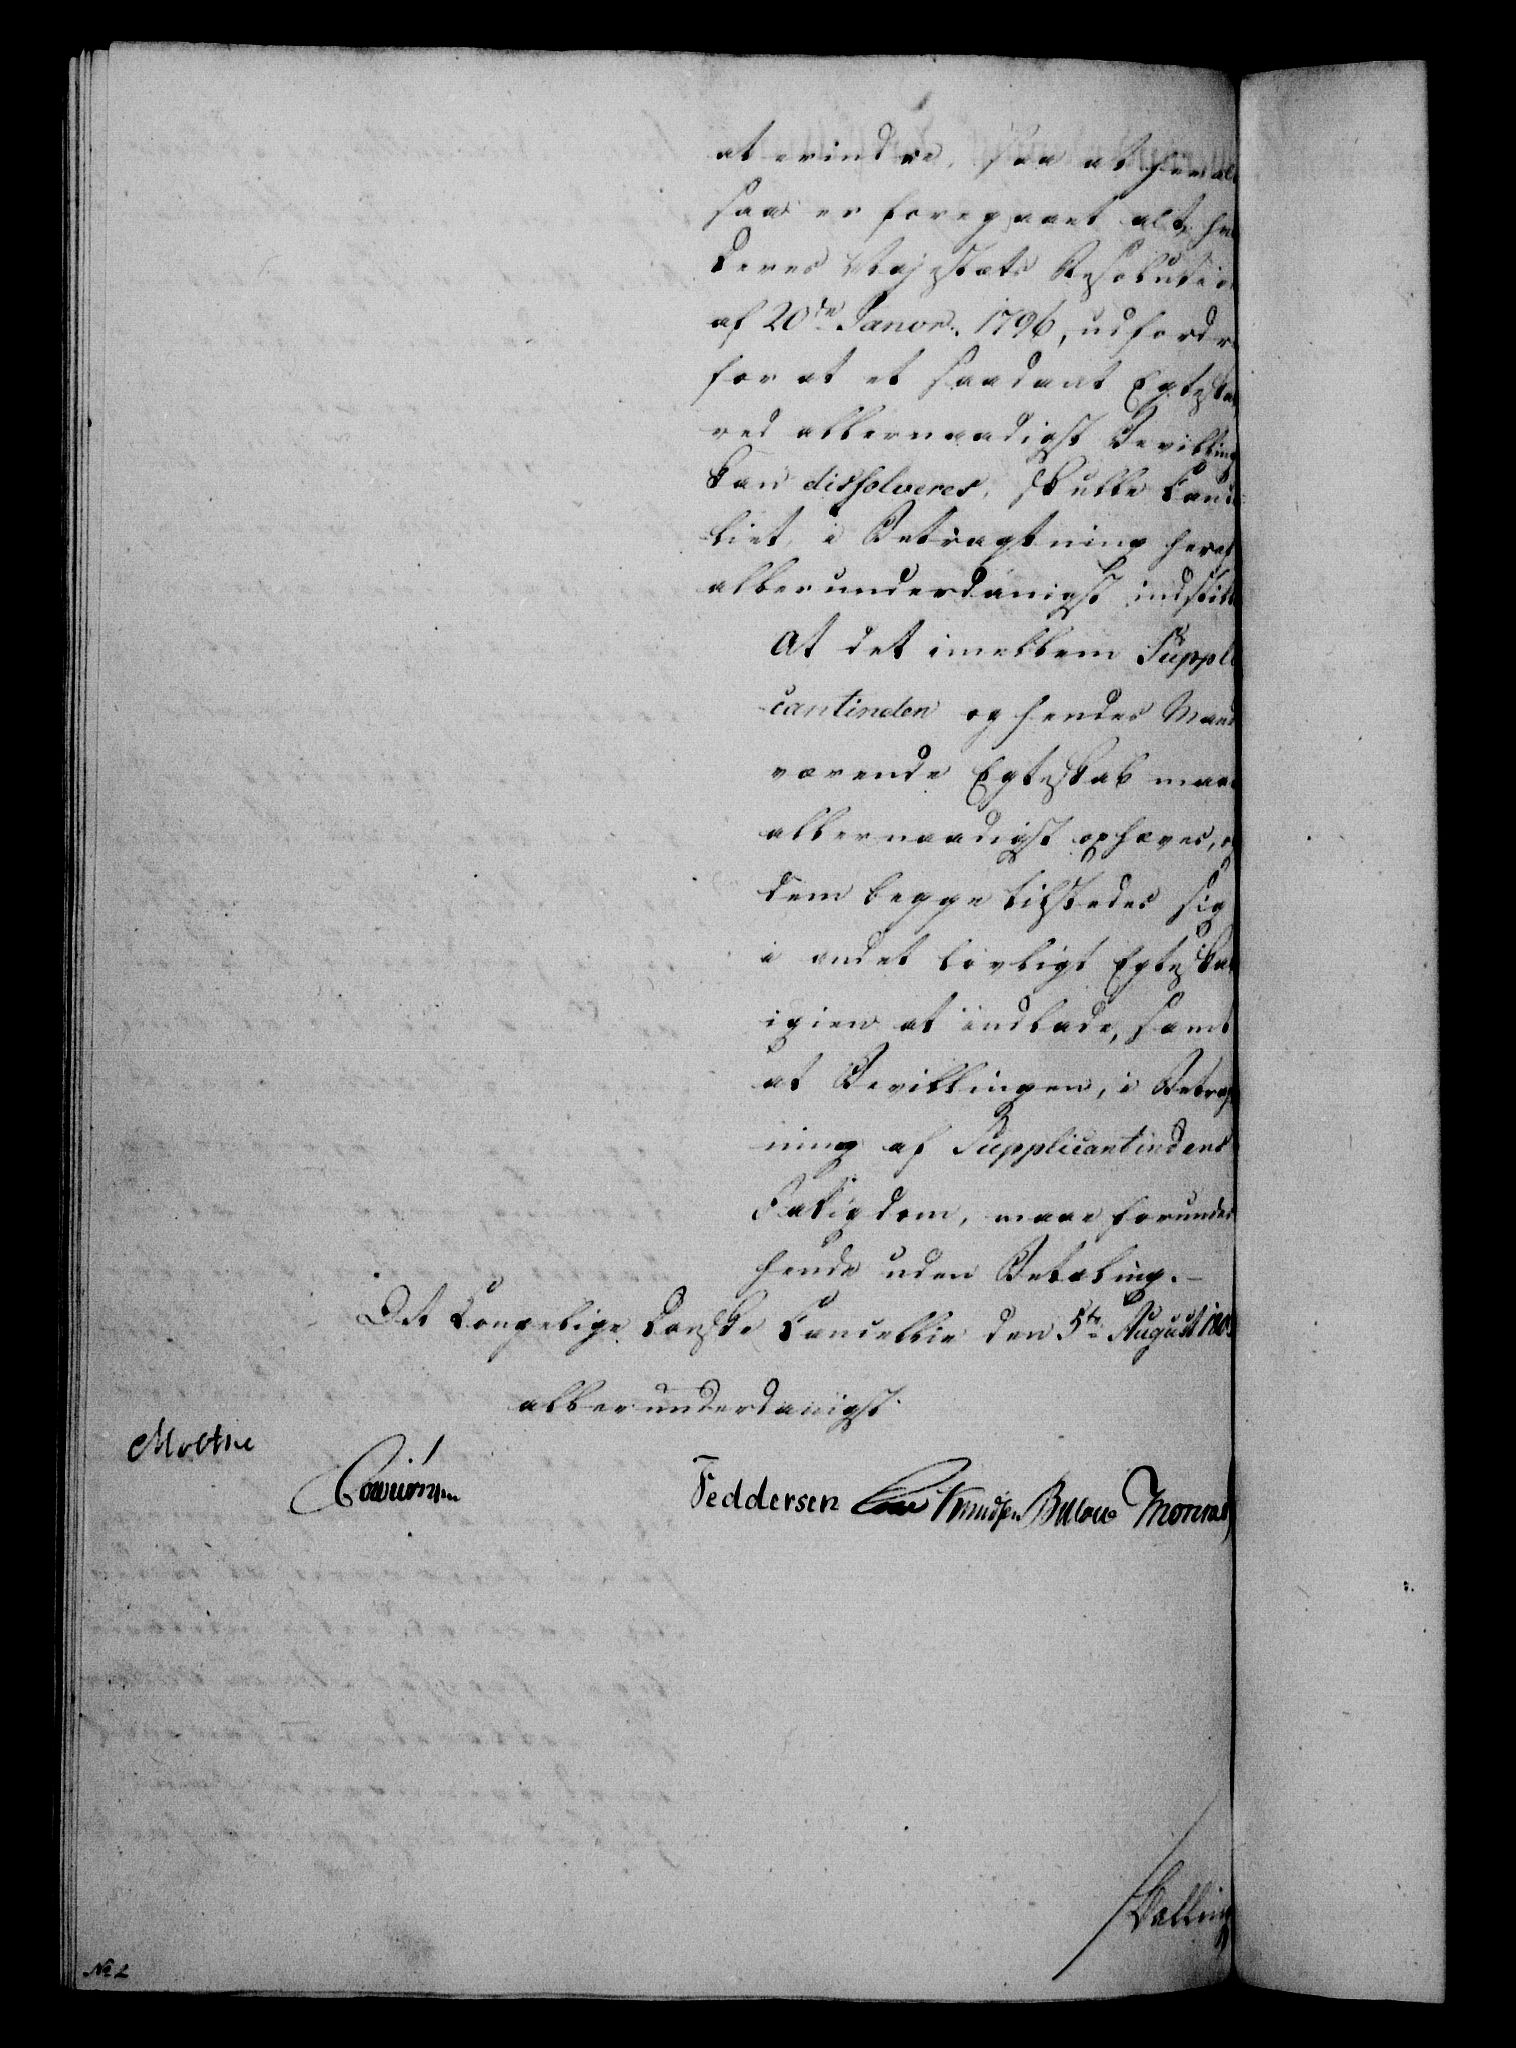 at erindre, saa at her al
saa er foregaaet alt, hv
Deres Majestæts Resolution
af 20de Januar. 1796, udfordre
for at et saadant Egteskab
ved allernaadigst Bevilling
kan dissolveres, skulle Cancel
liet, i Betragtning heraf
allerunderdanigst indstille
At det imellem Suppli
cantinden og hendes Mand
værende Egteskab maae
allernaadigst ophæves, og
dem begge tilstedes sig
i andet lovligt Egteskab
igien at indlade, samt
at Bevillingen, i Betragt
ning af Supplicantindens
Fattigdom, maae forundes
hende uden Betaling.
Det Kongelige Danske Cancellie den 5te August
allerunderdanigst.
Moltke
Feddersen Knudsen Bülow Monrad
Dalling
No 2